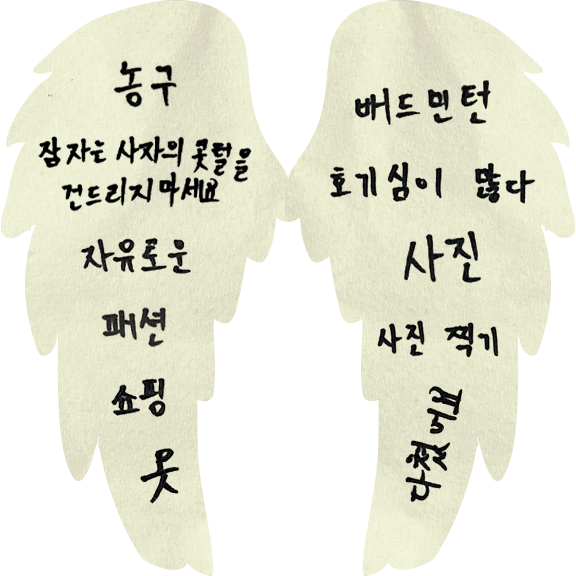 농구
잠자는 사자의 콧털을
건드리지마세요
자유로운
패션
쇼핑
옷
배드민턴
호기심이 많다
사진
사진 찍기
다했어요